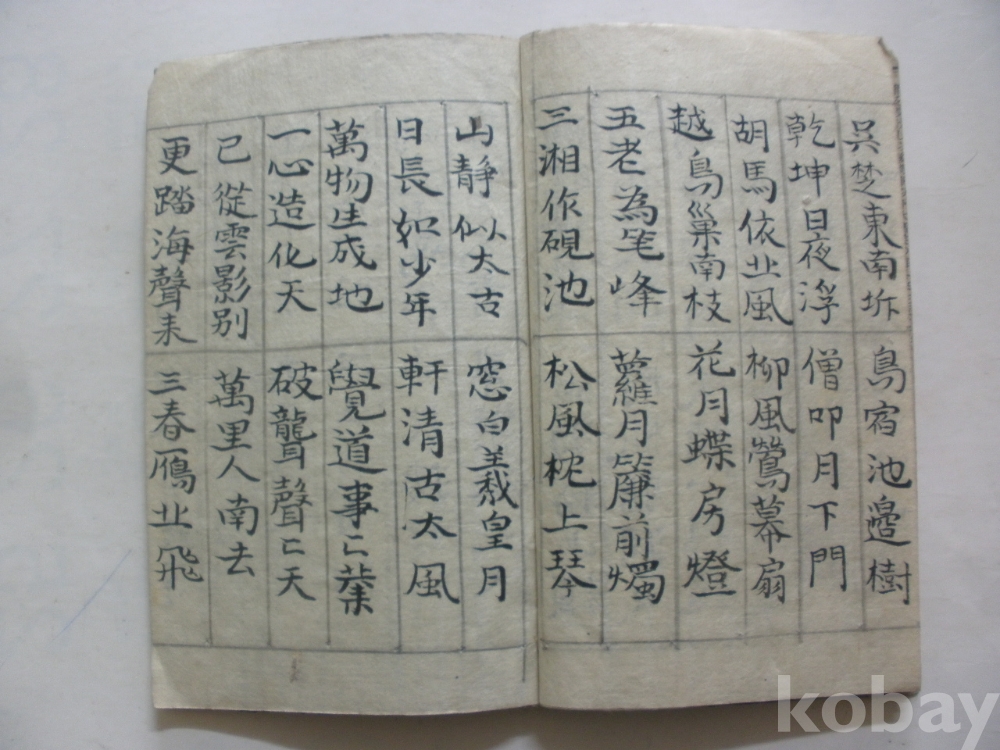 吳楚東南坼
乾坤日夜浮
胡馬依北風
越鳥巢南枝
五老為笔峰
三湘作硯池
鳥宿池邊樹
僧叩月下門
柳風鶯幕扇
花月蝶房燈
蘿月簾前燭
松風枕上琴
山靜似太古
日長如少年
萬物生成地
一心造化天
已從雲影別
更踏海聲来
窓白羲皇月
軒清古太風
覺道事
破聾聲亡天
萬里人南去
三春鴈北飛
kobay